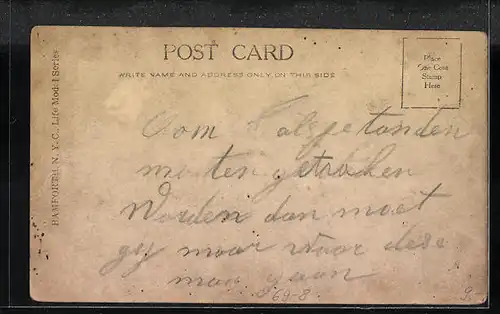 POST CARD
WRITE NAME AND ADDRESS ONLY ON THIS SIDE
Place
One Cent
Stamp
Here
BAMFORTH, N. Y. C., Life Model Series
Oom tanden
moeten getroken
Worden dan moet
gy maar voor dese
man gaan
69-8
9.